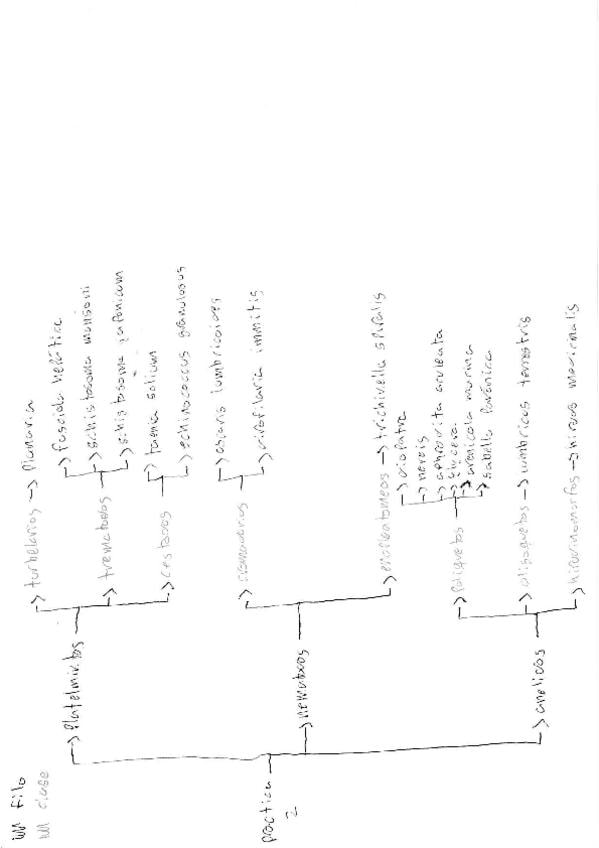 filo
clase
practica
2
platelmintos
turbelarios
planaria
trematodos
fasciola hepática
schistosoma mansoni
cestodos
taenia solium
echinococcus granulosus
nematodos
ascaris lumbricoides
dirofilaria immitis
trichinella spiralis
anelidos
poliquetos
diopatra
nereis
aphrodita aculeata
glycera
arenicola marina
sabella pavonica
oligoquetos
lumbricos terrestris
hirudinomorfos
hirudo medicinalis